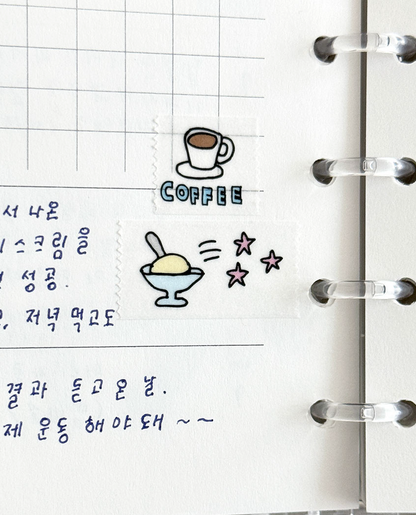 COFFEE
서 나온
스크림을
성공.
저녁 먹고도
결과 듣고 온 날.
제 운동 해야 돼 ~~